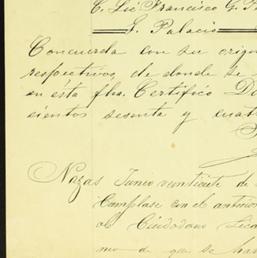 C. Lic Francisco G. P
G. Palacio
Concuerda con su orig
respectivos, de donde se
en ésta fha. Certifico D
sientos sesenta y cuat
Nazas Junio veintisiete de
Cumplase con el anterior
al Ciudadano Lica
mo de que se ha